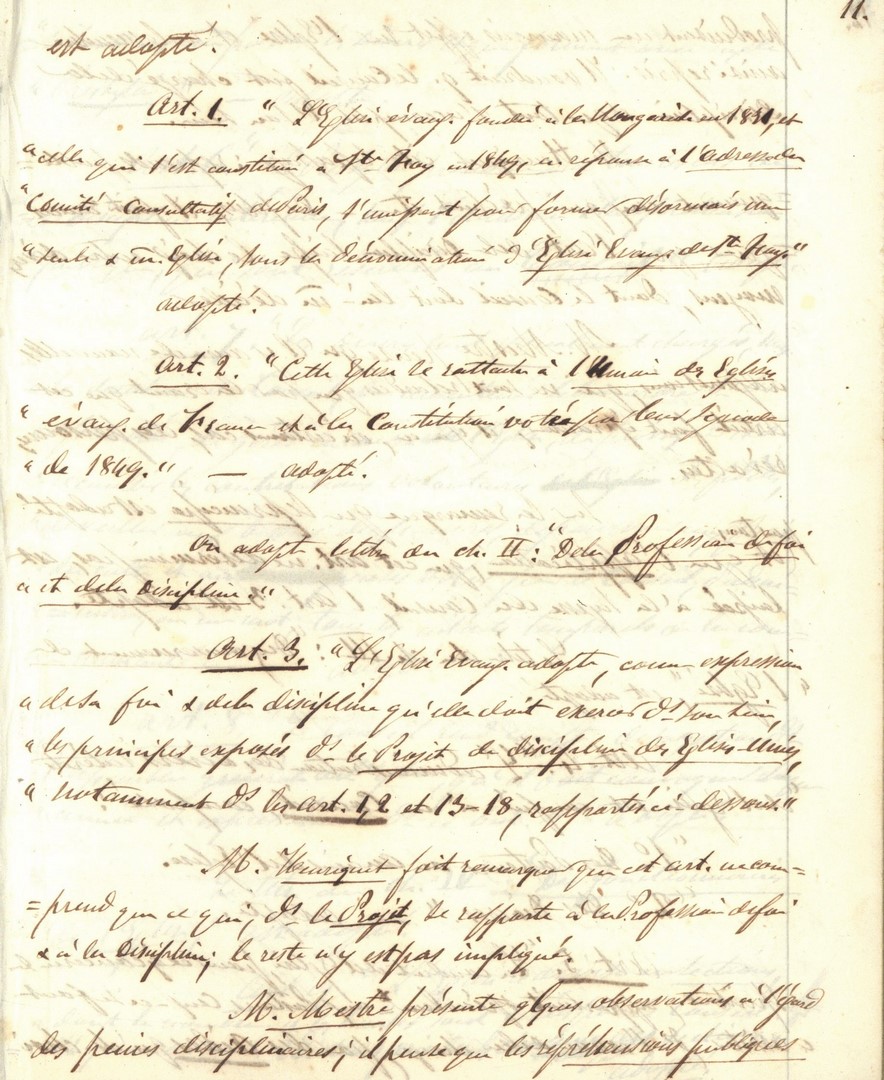 11.
est adopté.
Art. 1. " L'Eglise évang. fondée à la Nougarède en 1831, et
" celle qui s'est constituée à Ste Foy en 1849, en réponse à l'adresse du
" Comité consultatif de Paris, s'unissent pour former désormais une
" seule & m. Eglise, sous la dénomination d'Eglise Evang. de Ste Foy."
adopté.
Art. 2. " Cette Eglise se rattache à l'Union des Eglises
" évang. de France et à la Constitution votée par leur Synode
" de 1849." — adopté.
On adopte le titre du ch. II : " De la Profession de foi
" et de la Discipline."
Art. 3. " L'Eglise Evang. adopte, comme expression
" de sa foi & de la discipline qu'elle doit exercer ds son sein,
" les principes exposés ds le Projet de discipline des Eglises-Unies,
" notamment ds les art. 1, 2 et 13-18, rapportés ci-dessous."
M. Henriquet fait remarquer que cet art. ne com=
=prend que ce qui, ds le Projet, se rapporte à la Profession de foi
& à la Discipline; le reste n'y est pas impliqué.
M. Mestre présente qlques observations à l'égard
des peines disciplinaires; il pense que les répréhensions publiques